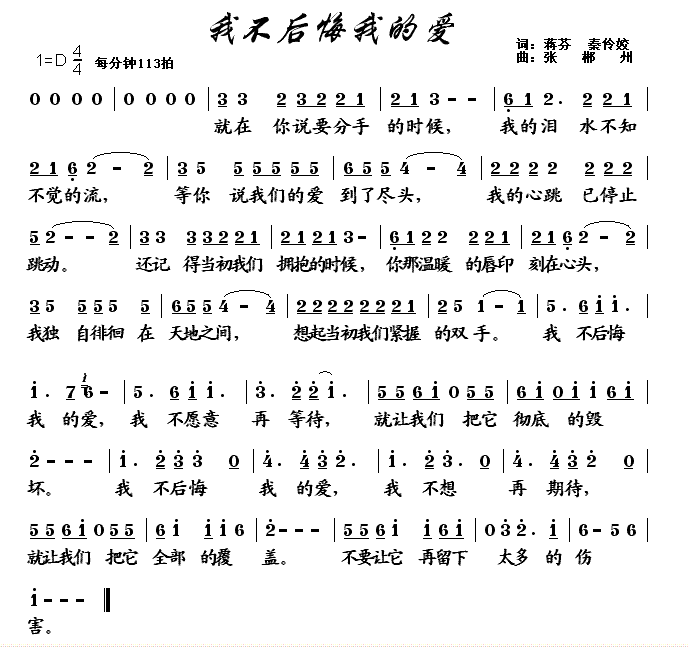 我不后悔我的爱
词：蒋芬 秦伶姣
1=D 4/4 每分钟113拍 曲：张郴州
0 0 0 0 | 0 0 0 0 | 3 3 2 3 2 2 1 | 2 1 3 - - | 6 1 2 . 2 2 1 |
就在 你说要分手 的时候， 我的泪 水不知
2 1 6 2 - 2 | 3 5 5 5 5 5 5 | 6 5 5 4 - 4 | 2 2 2 2 2 2 2 |
不觉的流， 等你 说我们的爱 到了尽头， 我的心跳 已停止
5 2 - - 2 | 3 3 3 3 2 2 1 | 2 1 2 1 3 - | 6 1 2 2 2 2 1 | 2 1 6 2 - 2 |
跳动。 还记 得当初我们 拥抱的时候， 你那温暖 的唇印 刻在心头，
3 5 5 5 5 5 | 6 5 5 4 - 4 | 2 2 2 2 2 2 2 1 | 2 5 1 - 1 | 5 . 6 1 1 . |
我独 自徘徊 在 天地之间， 想起当初我们紧握 的双手。 我 不后悔
1 . 7 6 - | 5 . 6 1 1 . | 3 . 2 2 1 . | 5 5 6 1 0 5 5 | 6 1 0 1 1 6 1 |
我 的爱， 我 不愿意 再 等待， 就让我们 把它 彻底 的毁
2 - - - | 1 . 2 3 3 0 | 4 . 4 3 2 . | 1 . 1 2 3 0 | 4 . 4 3 2 0 |
坏。 我 不后悔 我 的爱， 我 不想 再 期待，
5 5 6 1 0 5 5 | 6 1 1 1 6 | 2 - - - | 5 5 6 1 1 6 1 | 0 3 2 . 1 | 6 - 5 5 |
就让我们 把它 全部 的覆 盖。 不要让它 再留下 太多 的 伤
1 - - - ‖
害。